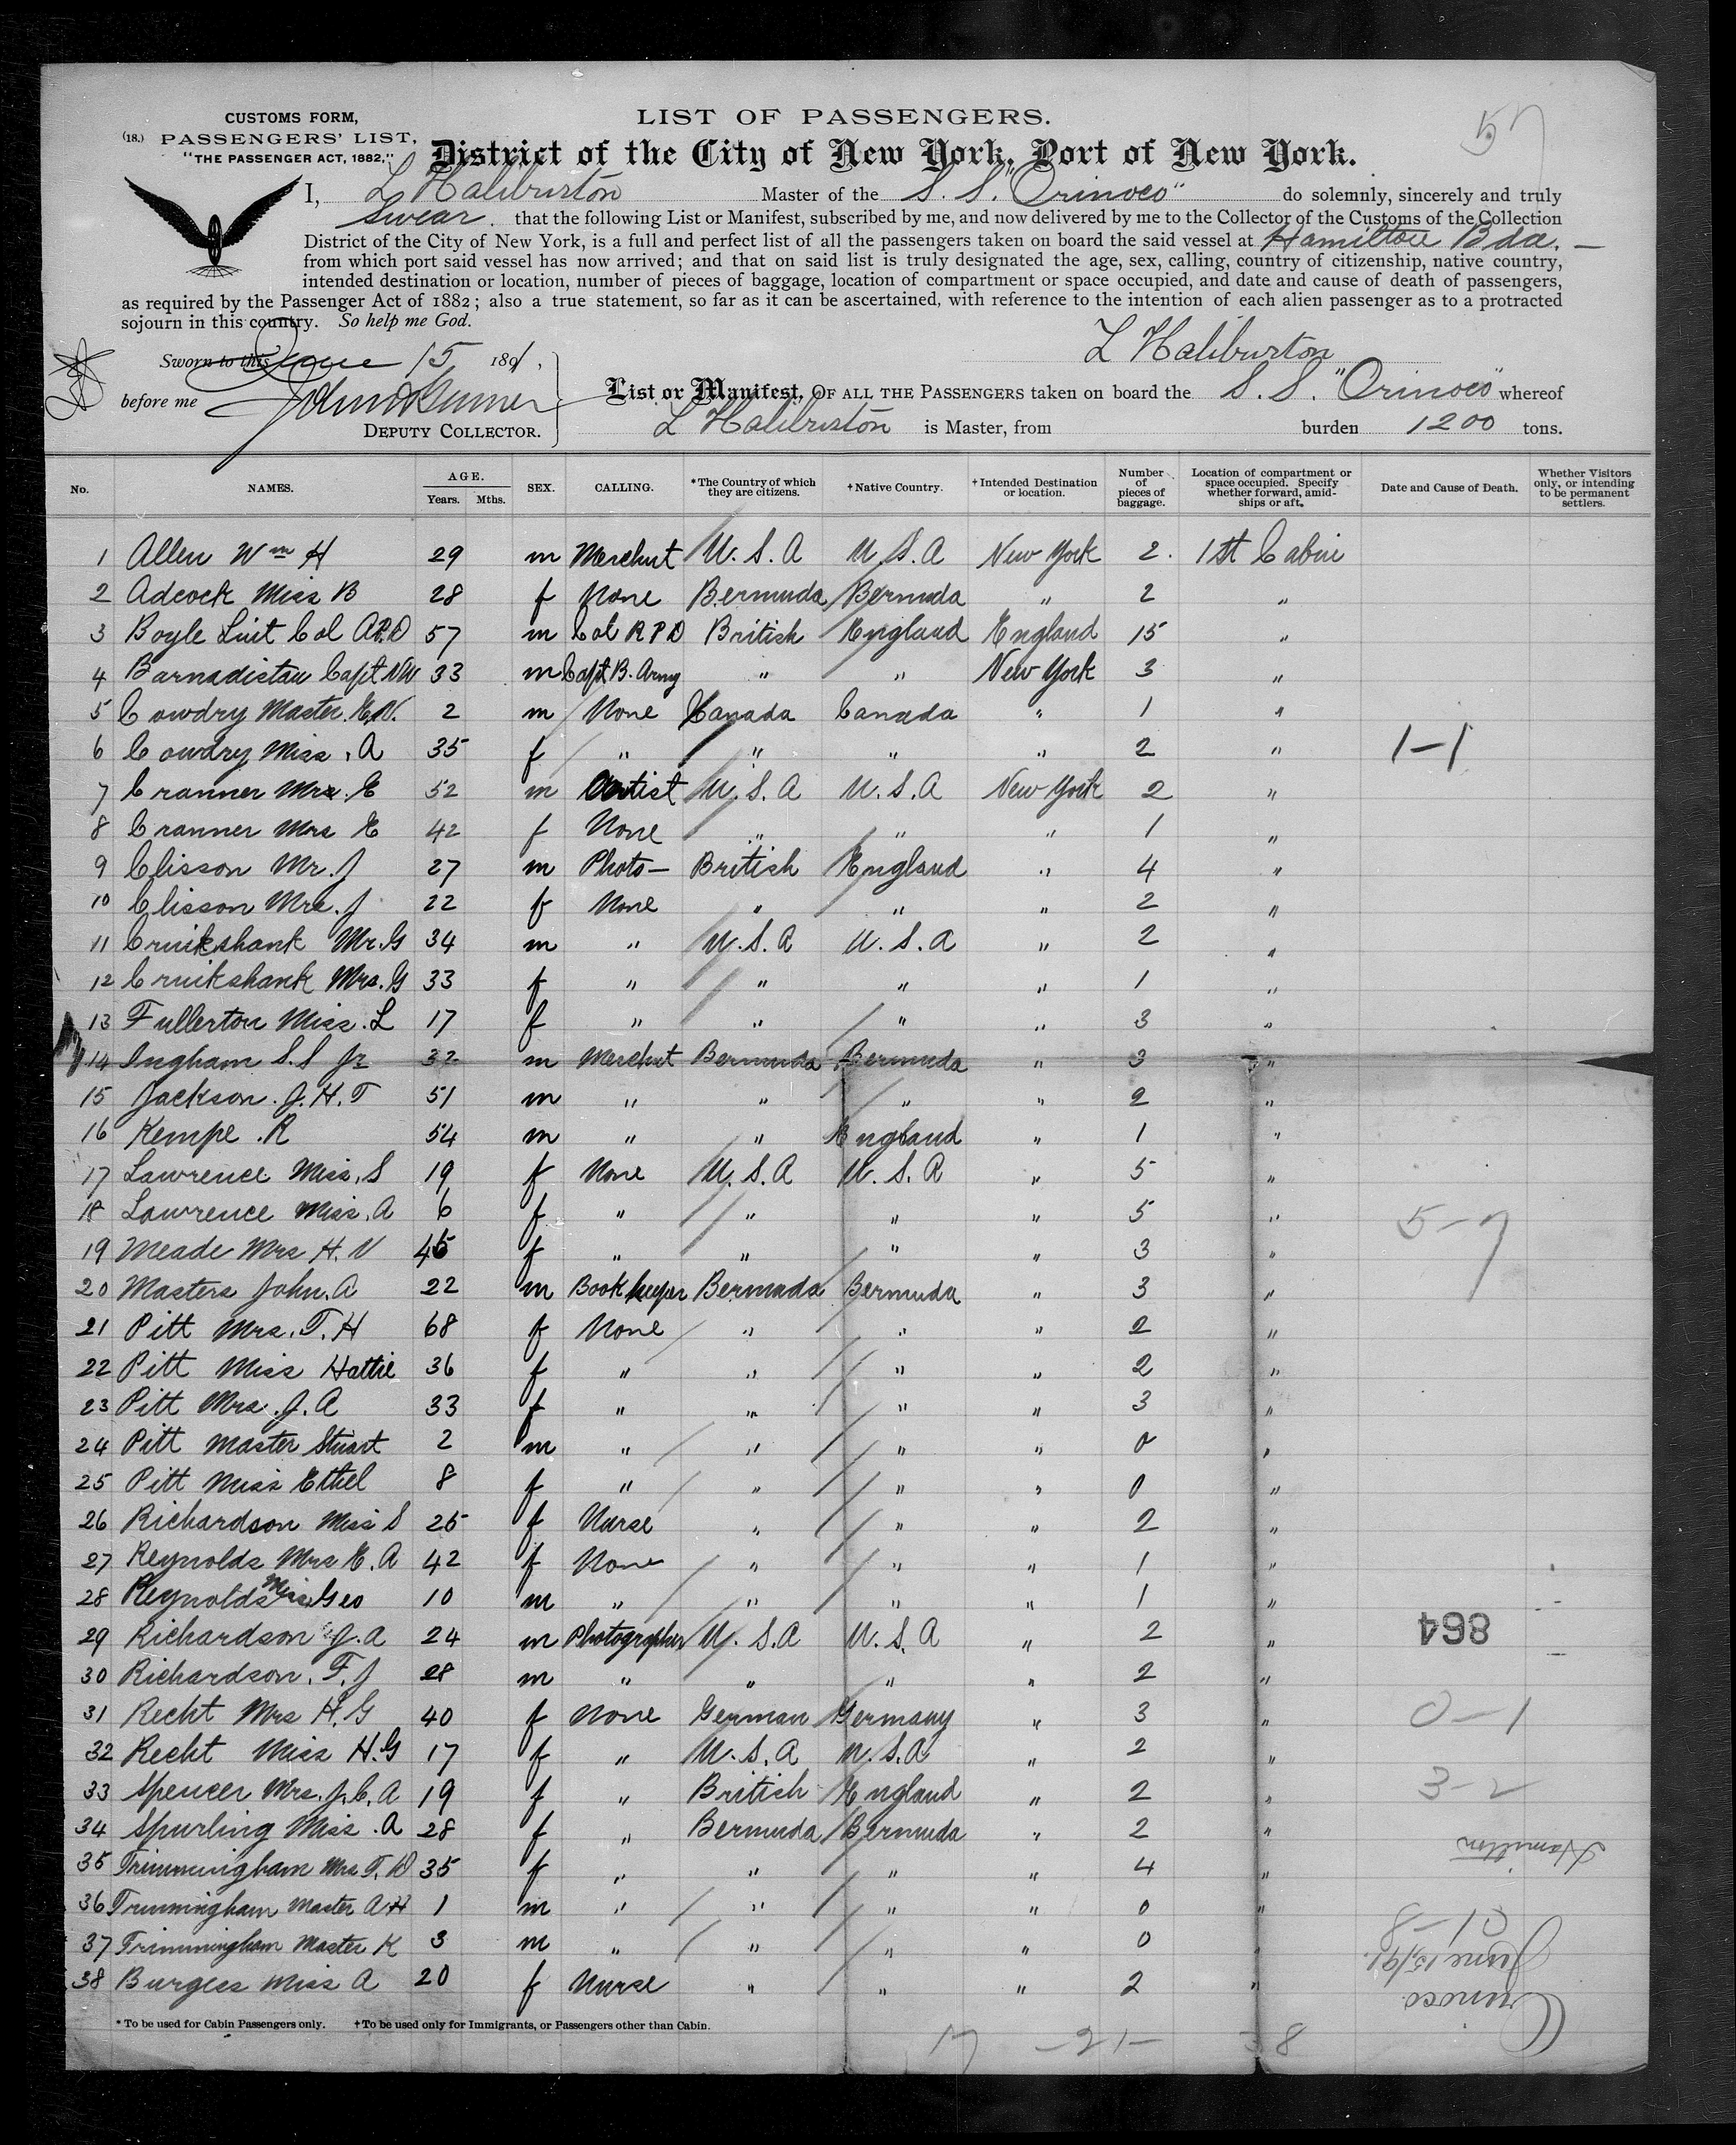 CUSTOMS FORM,
(18.) PASSENGERS' LIST,
"THE PASSENGER ACT, 1882,"
LIST OF PASSENGERS.
57
District of the City of New York, Port of New York.
I, L Haliburton Master of the S. S. "Orinoco" do solemnly, sincerely and truly
swear that the following List or Manifest, subscribed by me, and now delivered by me to the Collector of the Customs of the Collection
District of the City of New York, is a full and perfect list of all the passengers taken on board the said vessel at Hamilton Bda. —
from which port said vessel has now arrived; and that on said list is truly designated the age, sex, calling, country of citizenship, native country,
intended destination or location, number of pieces of baggage, location of compartment or space occupied, and date and cause of death of passengers,
as required by the Passenger Act of 1882; also a true statement, so far as it can be ascertained, with reference to the intention of each alien passenger as to a protracted
sojourn in this country. So help me God.
L Haliburton
Sworn to this June 15 1891,
before me
DEPUTY COLLECTOR.
List or Manifest, OF ALL THE PASSENGERS taken on board the S. S. "Orinoco" whereof
L Haliburton is Master, from burden 1200 tons.
No. NAMES. AGE. Years. Mths. SEX. CALLING. *The Country of which they are citizens. †Native Country. †Intended Destination or location. Number of pieces of baggage. Location of compartment or space occupied. Specify whether forward, amidships or aft. Date and Cause of Death. Whether Visitors only, or intending to be permanent settlers.
1 Allen Wm H 29 m Merchnt U. S. A U. S. A New York 2. 1st Cabin
2 Adcock Miss B 28 f None Bermuda Bermuda " 2 "
3 Boyle Liut Col A.P.D 57 m Col R P D British England England 15 "
4 Barnadistau Capt NW 33 m Capt B. Army " " New York 3 "
5 Cowdry Master. E.N. 2 m None Canada Canada " 1 "
6 Cowdry Miss. A 35 f " " " " 2 " 1-1
7 Cranner Mrx. E 52 m Artist U. S. A U. S. A New York 2 "
8 Cranner Mrs E 42 f None " " " 1 "
9 Clisson Mr. J 27 m Photo— British England " 4 "
10 Clisson Mrs. J 22 f None " " " 2 "
11 Cruikshank Mr. G 34 m " U. S. A U. S. A " 2 "
12 Cruikshank Mrs. G 33 f " " " " 1 "
13 Fullerton Miss. L 17 f " " " " 3 "
14 Ingham S. S Jr 32 m Merchnt Bermuda Bermuda " 3 "
15 Jackson. J. H. T 51 m " " " " 2 "
16 Kempe. R 54 m " " England " 1 "
17 Lawrence Miss. S 19 f None U. S. A U. S. A " 5 "
18 Lawrence Miss. A 6 f " " " " 5 " 5-7
19 Meade Mrs H. V 45 f " " " " 3 "
20 Masters John. A 22 m Bookkeeper Bermuda Bermuda " 3 "
21 Pitt Mrs. T. H 68 f None " " " 2 "
22 Pitt Miss Hattie 36 f " " " " 2 "
23 Pitt Mrs. J. A 33 f " " " " 3 "
24 Pitt Master Stuart 2 m " " " " 0 "
25 Pitt Miss Ethel 8 f " " " " 0 "
26 Richardson Miss S 25 f Nurse " " " 2 "
27 Reynolds Mrs E. A 42 f None " " " 1 "
28 Reynolds Geo 10 m " " " " 1 "
29 Richardson J. A 24 m Photographer U. S. A U. S. A " 2 " 864
30 Richardson. F. J 28 m " " " " 2 "
31 Recht Mrs H. G 40 f None German Germany " 3 " 0-1
32 Recht Miss H. G 17 f " U. S. A U. S. A " 2 "
33 Spencer Mrs. J. C. A 19 f " British England " 2 " 3-2
34 Spurling Miss. A 28 f " Bermuda Bermuda " 2 "
Hamilton
35 Trimmingham Mrs T. D 35 f " " " " 4 "
36 Trimmingham Master A H 1 m " " " " 0 "
37 Trimmingham Master K 3 m " " " " 0 "
June 15/91.
38 Burgess Miss A 20 f Nurse " " " 2 "
Orinoco
*To be used for Cabin Passengers only. †To be used only for Immigrants, or Passengers other than Cabin.
17 — 21 — 38